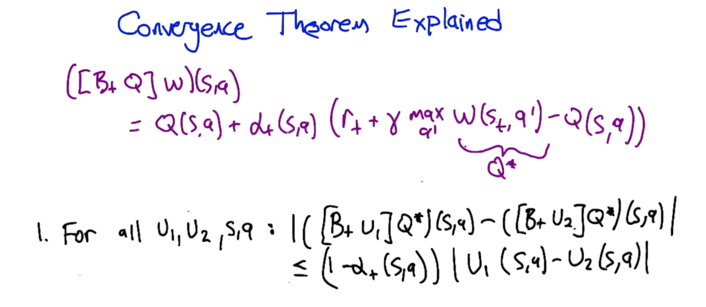 Convergence Theorem Explained
([Bₜ Q] w)(s,a)
= Q(s,a) + αₜ(s,a) (rₜ + γ max_a' w(sₜ,a') - Q(s,a))
Q*
1. For all U₁,U₂,s,a : |([Bₜ U₁]Q*)(s,a) - ([Bₜ U₂]Q*)(s,a)|
≤ (1-αₜ(s,a)) |U₁(s,a) - U₂(s,a)|